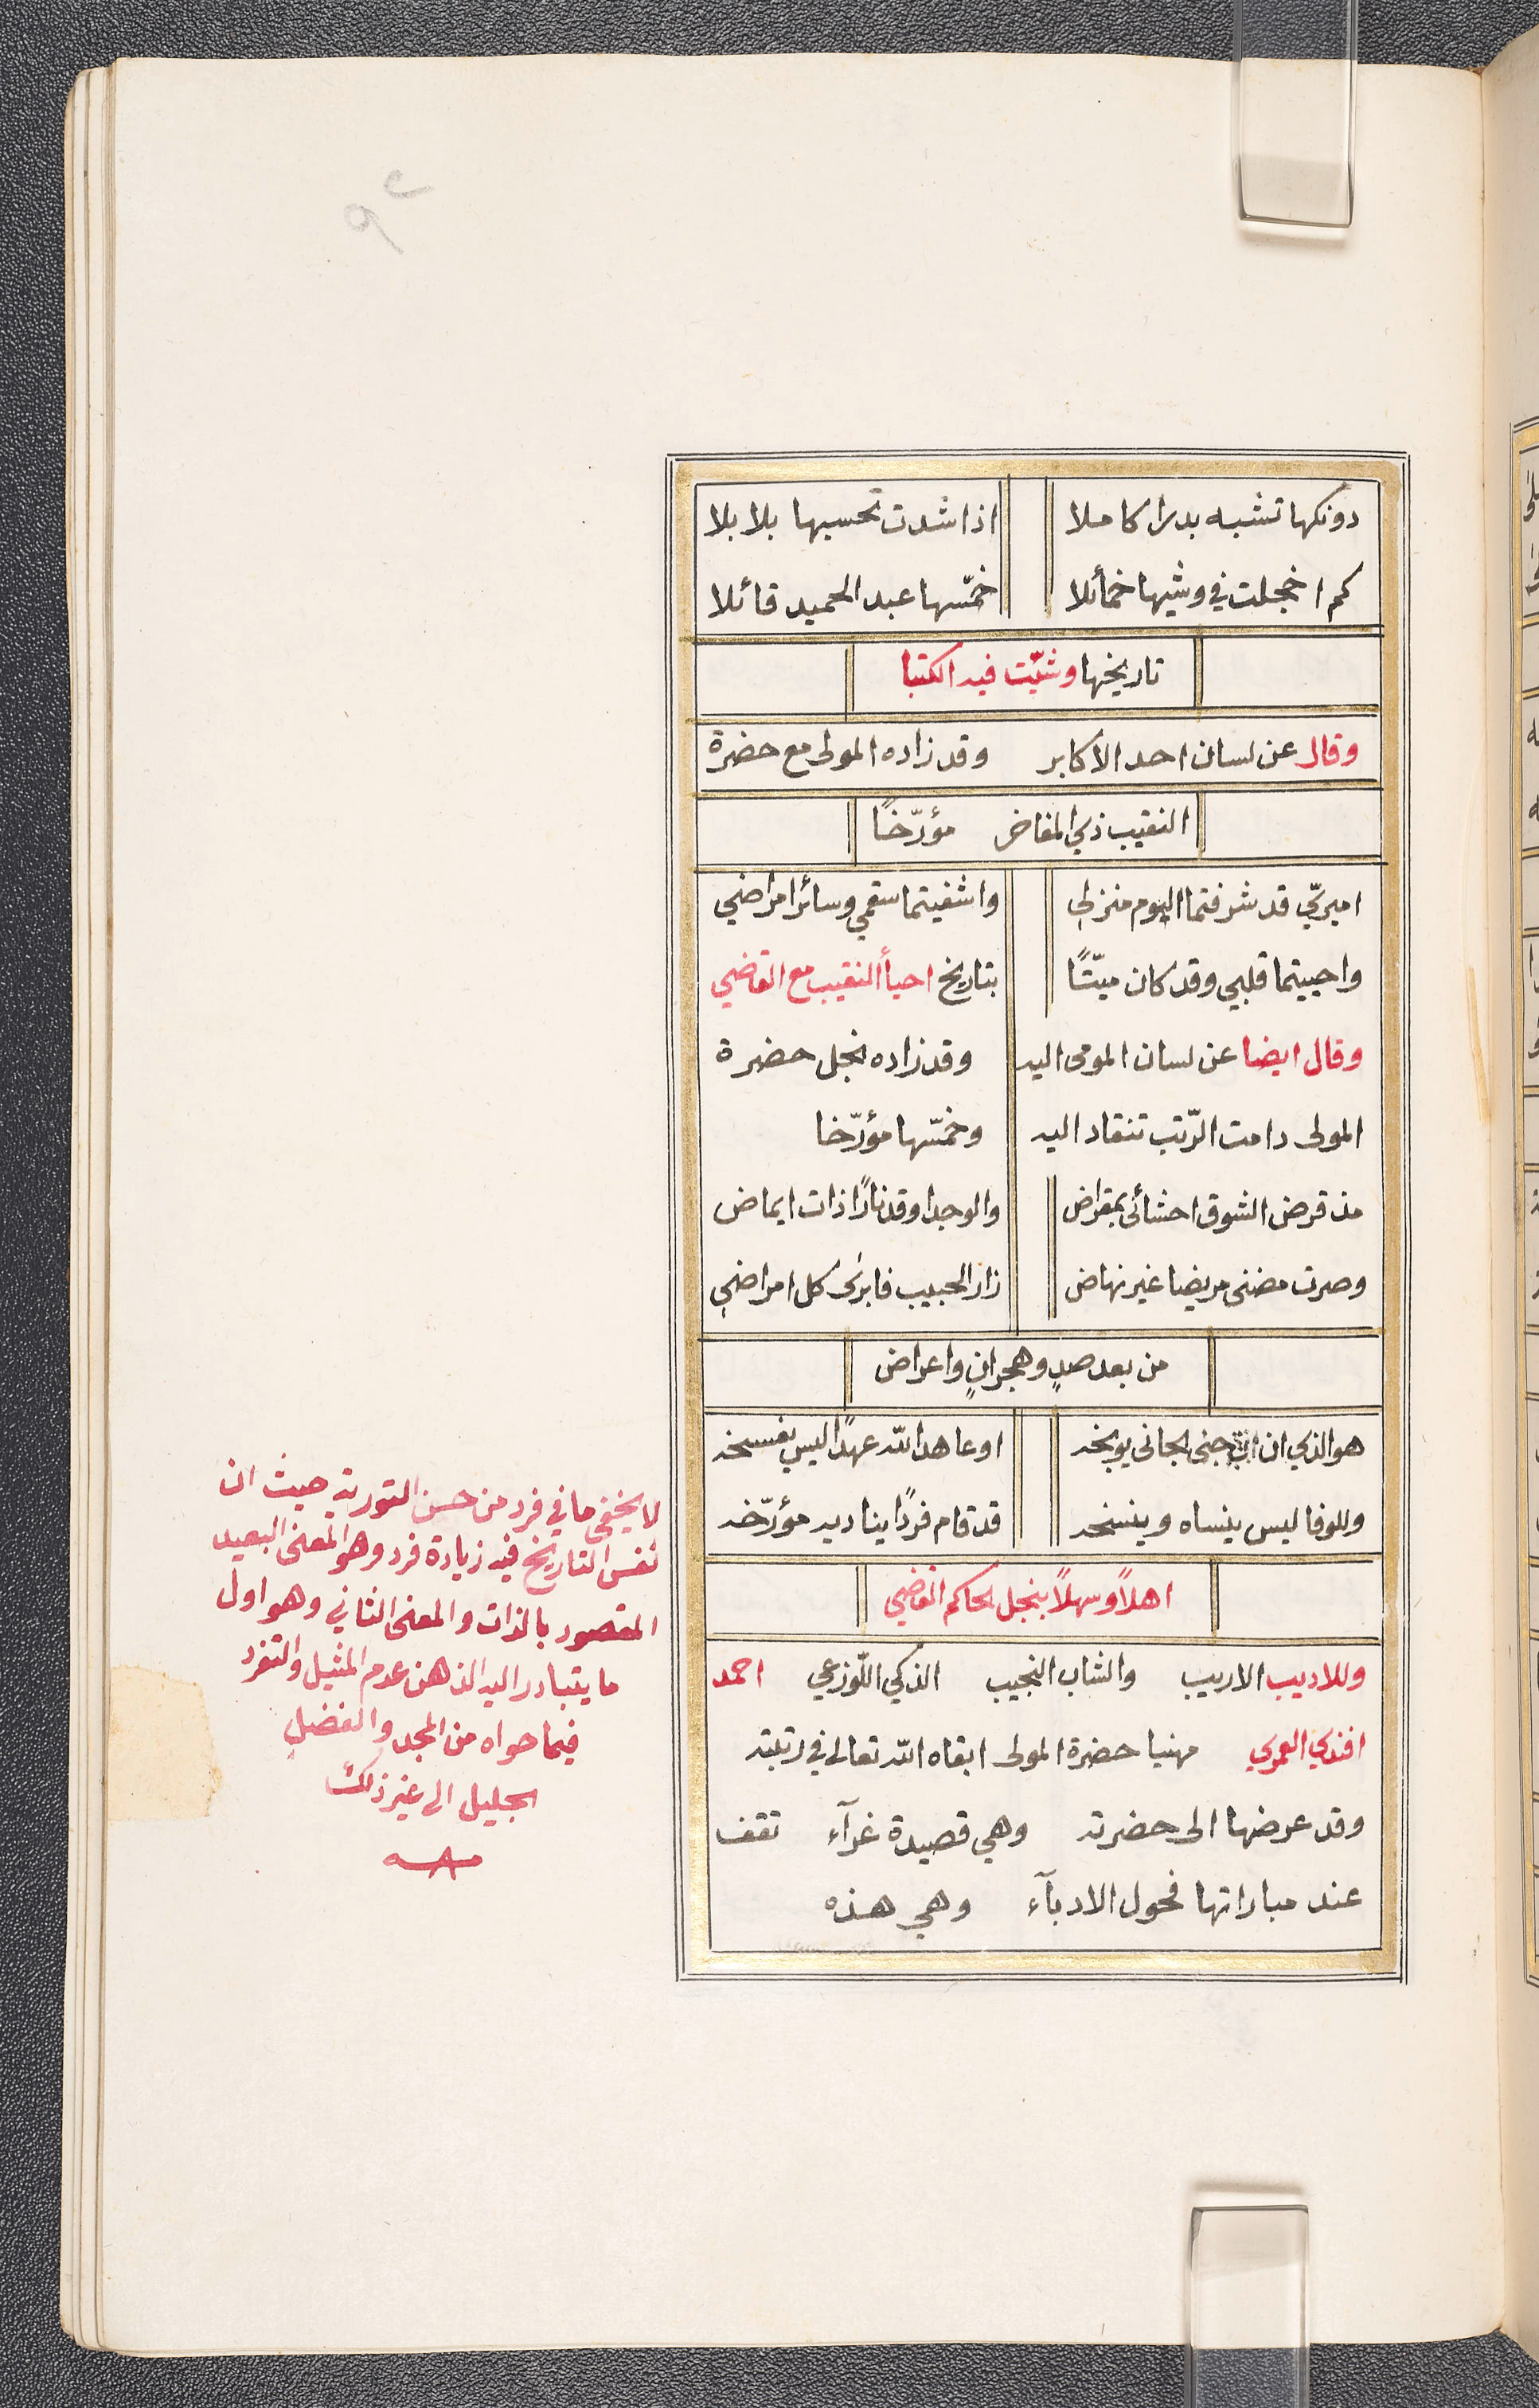 ٩٢
دونكها تشبه بدرا كاملا اذا شدت تحسبها بلابلا
كم اخجلت في وشيها خمائلا خمّسها عبد الحميد قائلا
تاريخها وشيّت فيه الكتبا
وقال عن لسان احد الاكابر وقد زاره المولى مع حضرة
النقيب ذي المفاخر مؤرّخًا
اميريّ قد شرفتما اليوم منزلي واشفيتما سقمي وسائر امراضي
واحييتما قلبي وقد كان ميّتًا بتاريخ احيا النقيب مع القاضي
وقال ايضا عن لسان المومى اليه وقد زاره نجل حضرة
المولى دامت الرّتب تنقاد اليه وخمّسها مؤرّخا
مذ قرض الشوق احشائى بمقراض والوجد اوقد نارًا ذات ايماض
وصرت مضنى مريضا غير نهاض زار الحبيب فابرى كل امراضي
من بعد صدٍ وهجرانٍ واعراض
هو الذي ان جنى الجانى يوبخه او عاهد الله عهدًا ليس يفسخه
وللوفا ليس ينساه وينسخه قد قام فردًا يناديه مؤرّخه
اهلاً وسهلاً بنجل الحاكم القاضي
وللاديب الاريب والشاب النجيب الذكي اللّوزعي احمد
افندي العمري مهنيا حضرة المولى ابقاه الله تعالى في رتبته
وقد عرضها الى حضرته وهي قصيدة غرآء تقف
عند مباراتها فحول الادبآء وهي هذه
لا يخفى ما في فرد من حسن التورية حيث ان
نفس التاريخ فيه زيادة فرد وهو المعنى البعيد
المقصود بالذات والمعنى الثاني وهو اول
ما يتبادر اليه الذهن عدم المثيل والتفرد
فيما حواه من المجد والفضل
الجليل الى غير ذلك